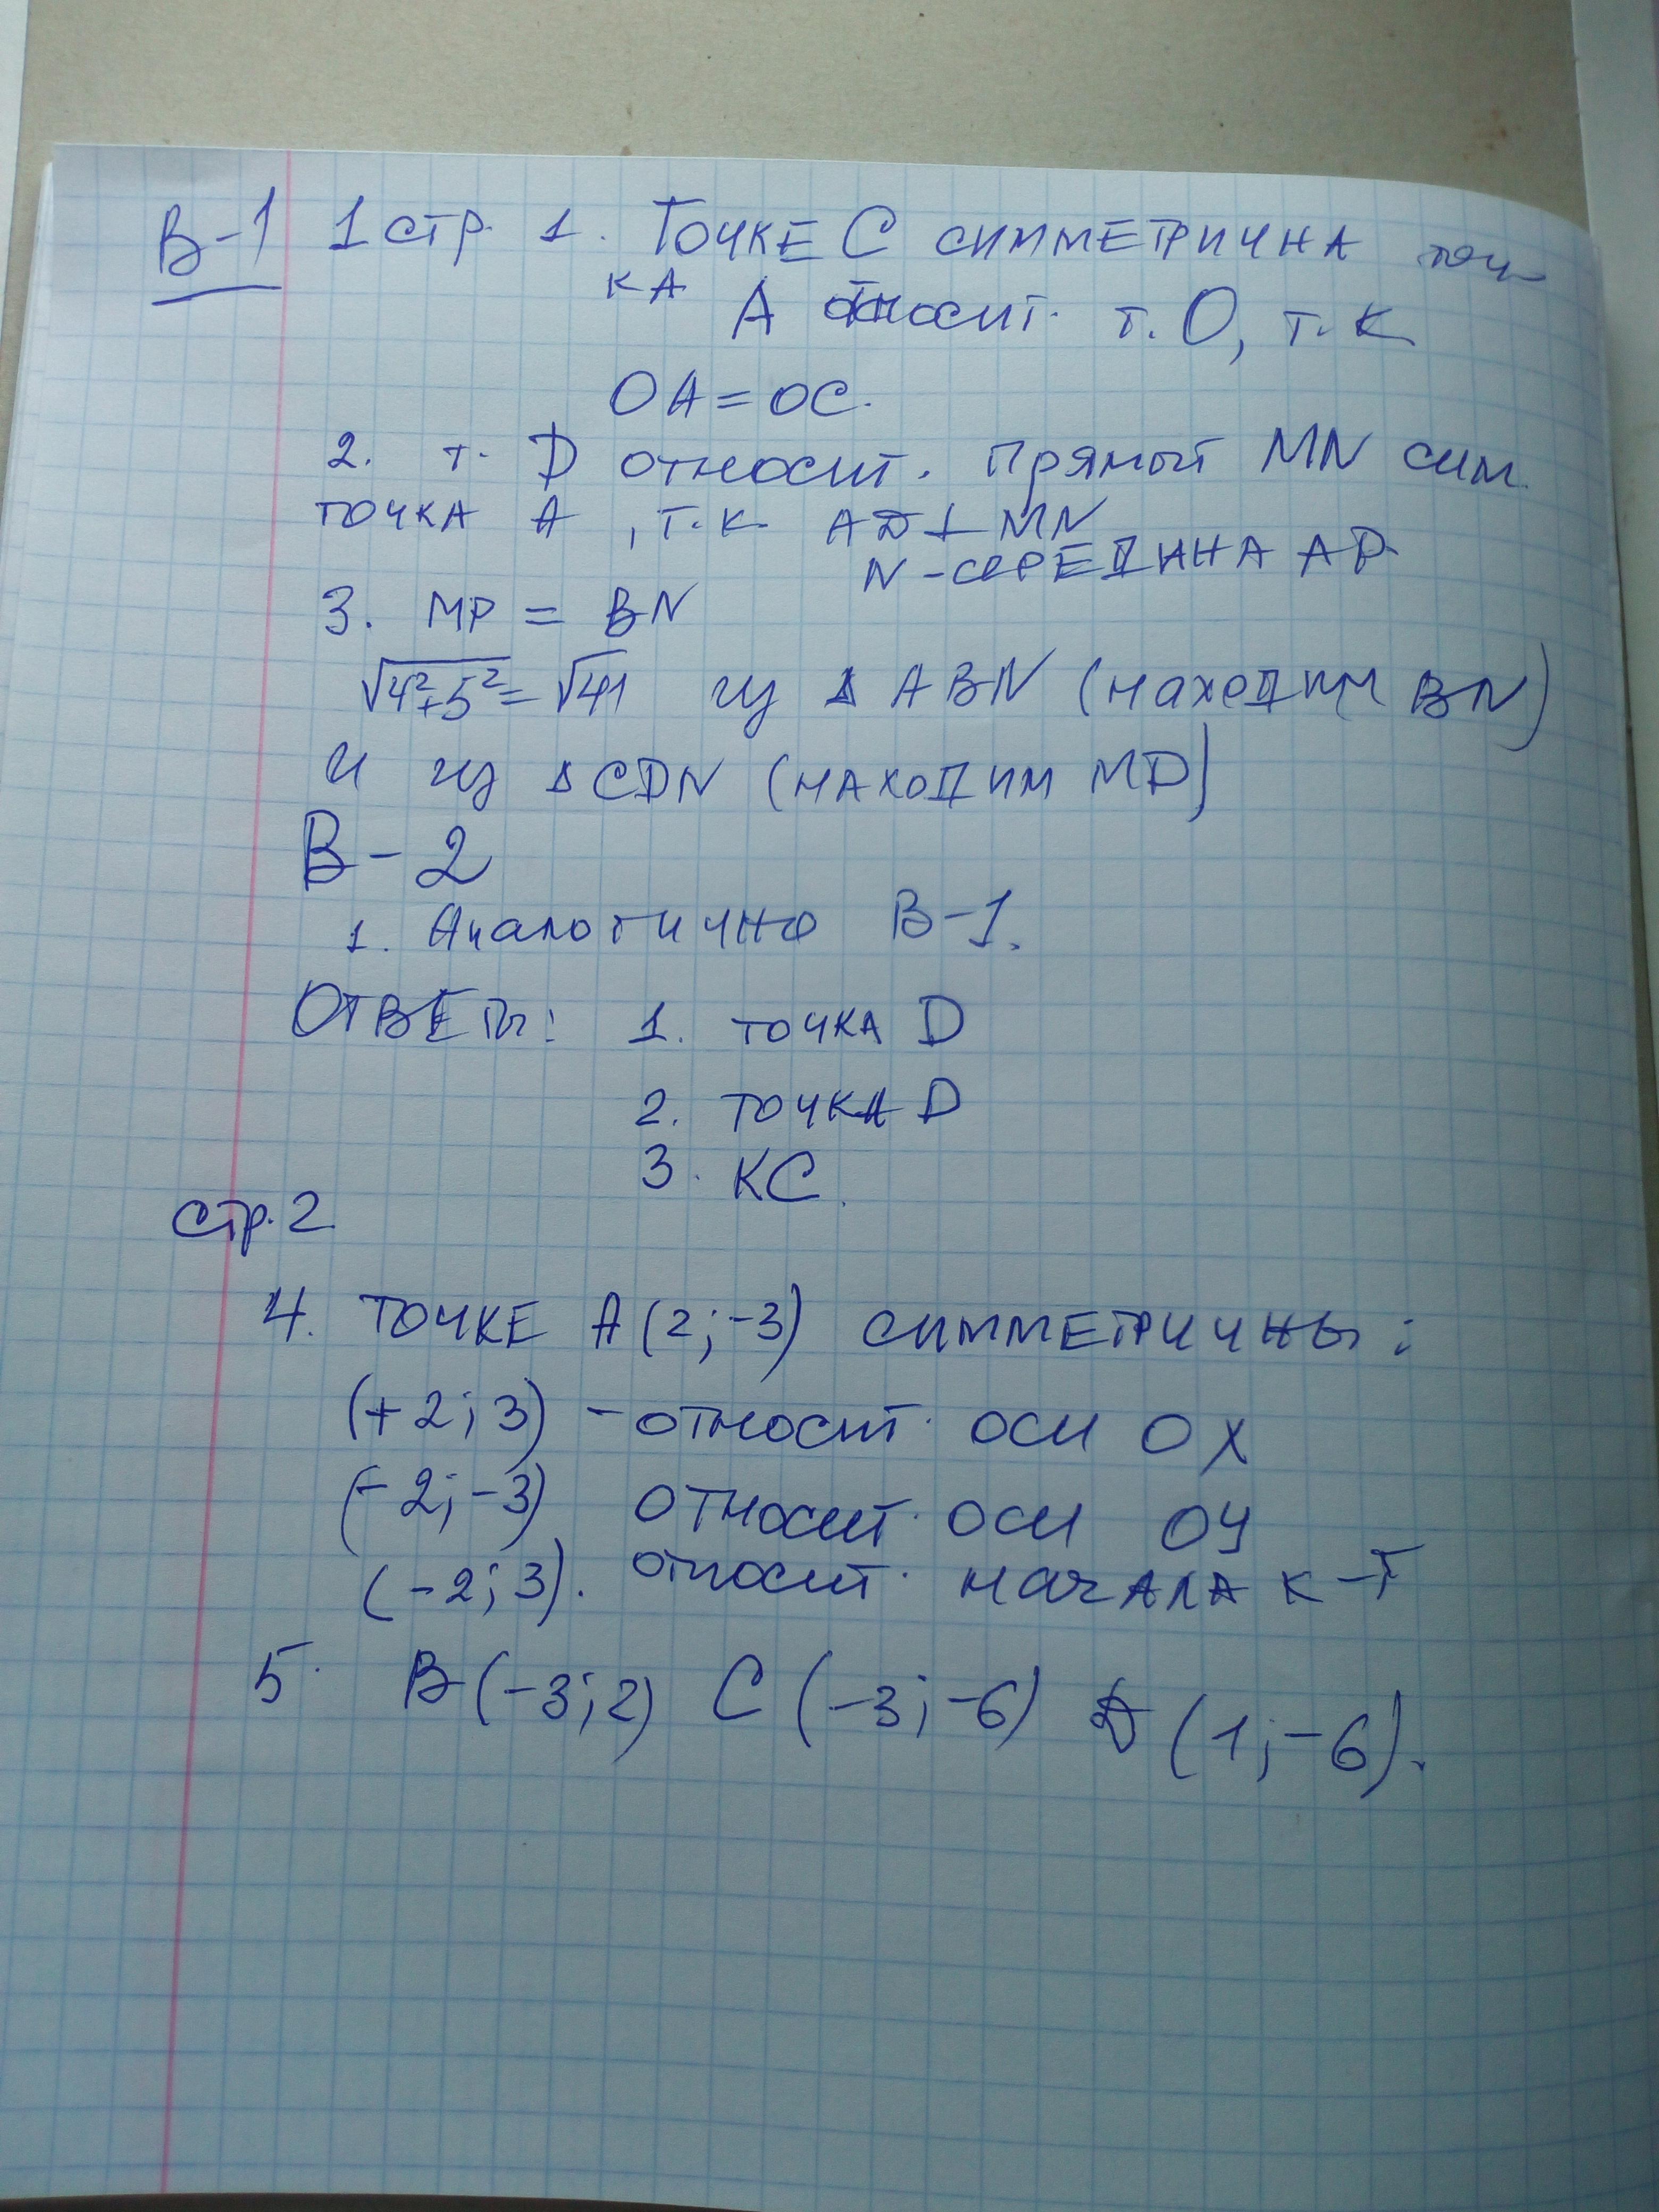 В-1 1 стр. 1. Точке С симметрична точ-
ка А относит. т. О, т.к
ОА = ОС.
2. т. D относит. прямой MN сим.
точка А, т.к. AD ⊥ MN
N - середина AD
3. MD = BN
√4²+5² = √41 из Δ ABN (находим BN)
и из Δ CDN (находим MD)
В-2
1. Аналогично В-1.
Ответы: 1. точка D
2. точка D
3. КС.
стр. 2
4. точке А (2; -3) симметричны:
(+2; 3) - относит. оси ОХ
(-2; -3) относит. оси ОУ
(-2; 3). относит. начала к-т
5. В (-3; 2) С (-3; -6) D (1; -6).